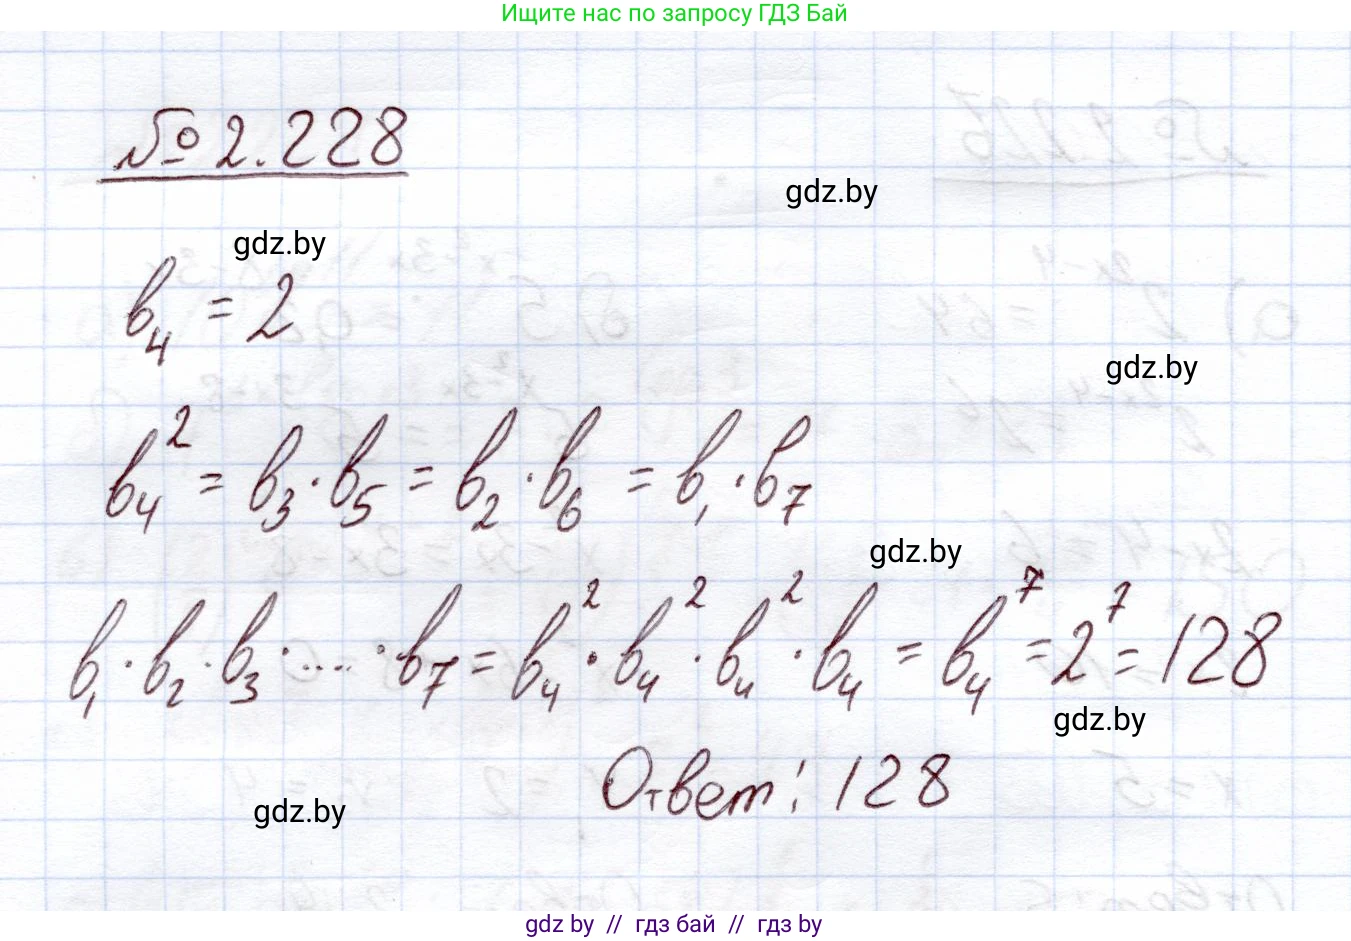 Ищите нас по запросу ГДЗ Бай
№ 2.228
gdz.by
gdz.by
b₄ = 2
gdz.by
b₄² = b₃ · b₅ = b₂ · b₆ = b₁ · b₇
gdz.by
b₁ · b₂ · b₃ · .... · b₇ = b₄² · b₄² · b₄² · b₄ = b₄⁷ = 2⁷ = 128
gdz.by
Ответ: 128
gdz.by
gdz.by // гдз бай // гдз by